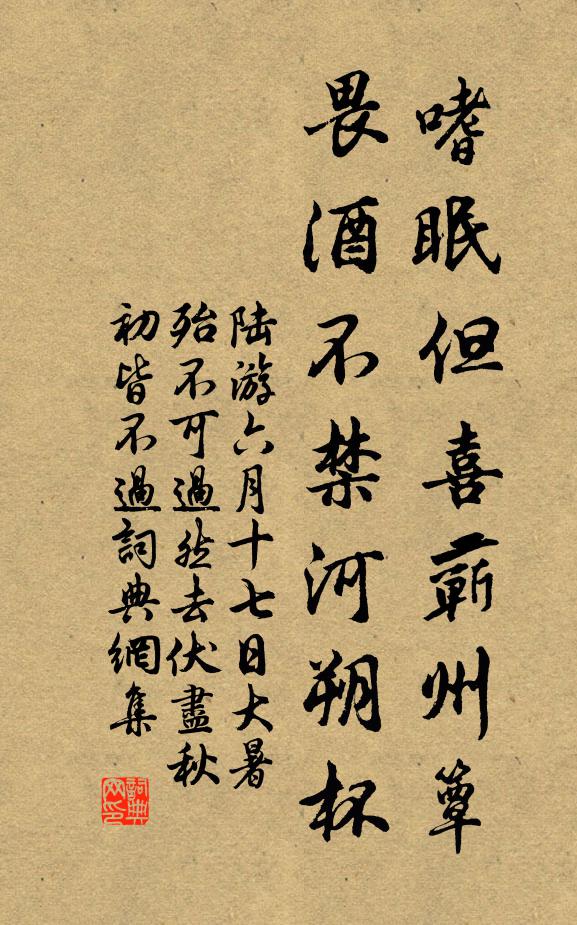 嗜眠但喜蘄州簟
畏酒不禁河朔杯
陆游六月十七日大暑
殆不可過然去伏盡秋
初皆不過詞典網集
詞典网印